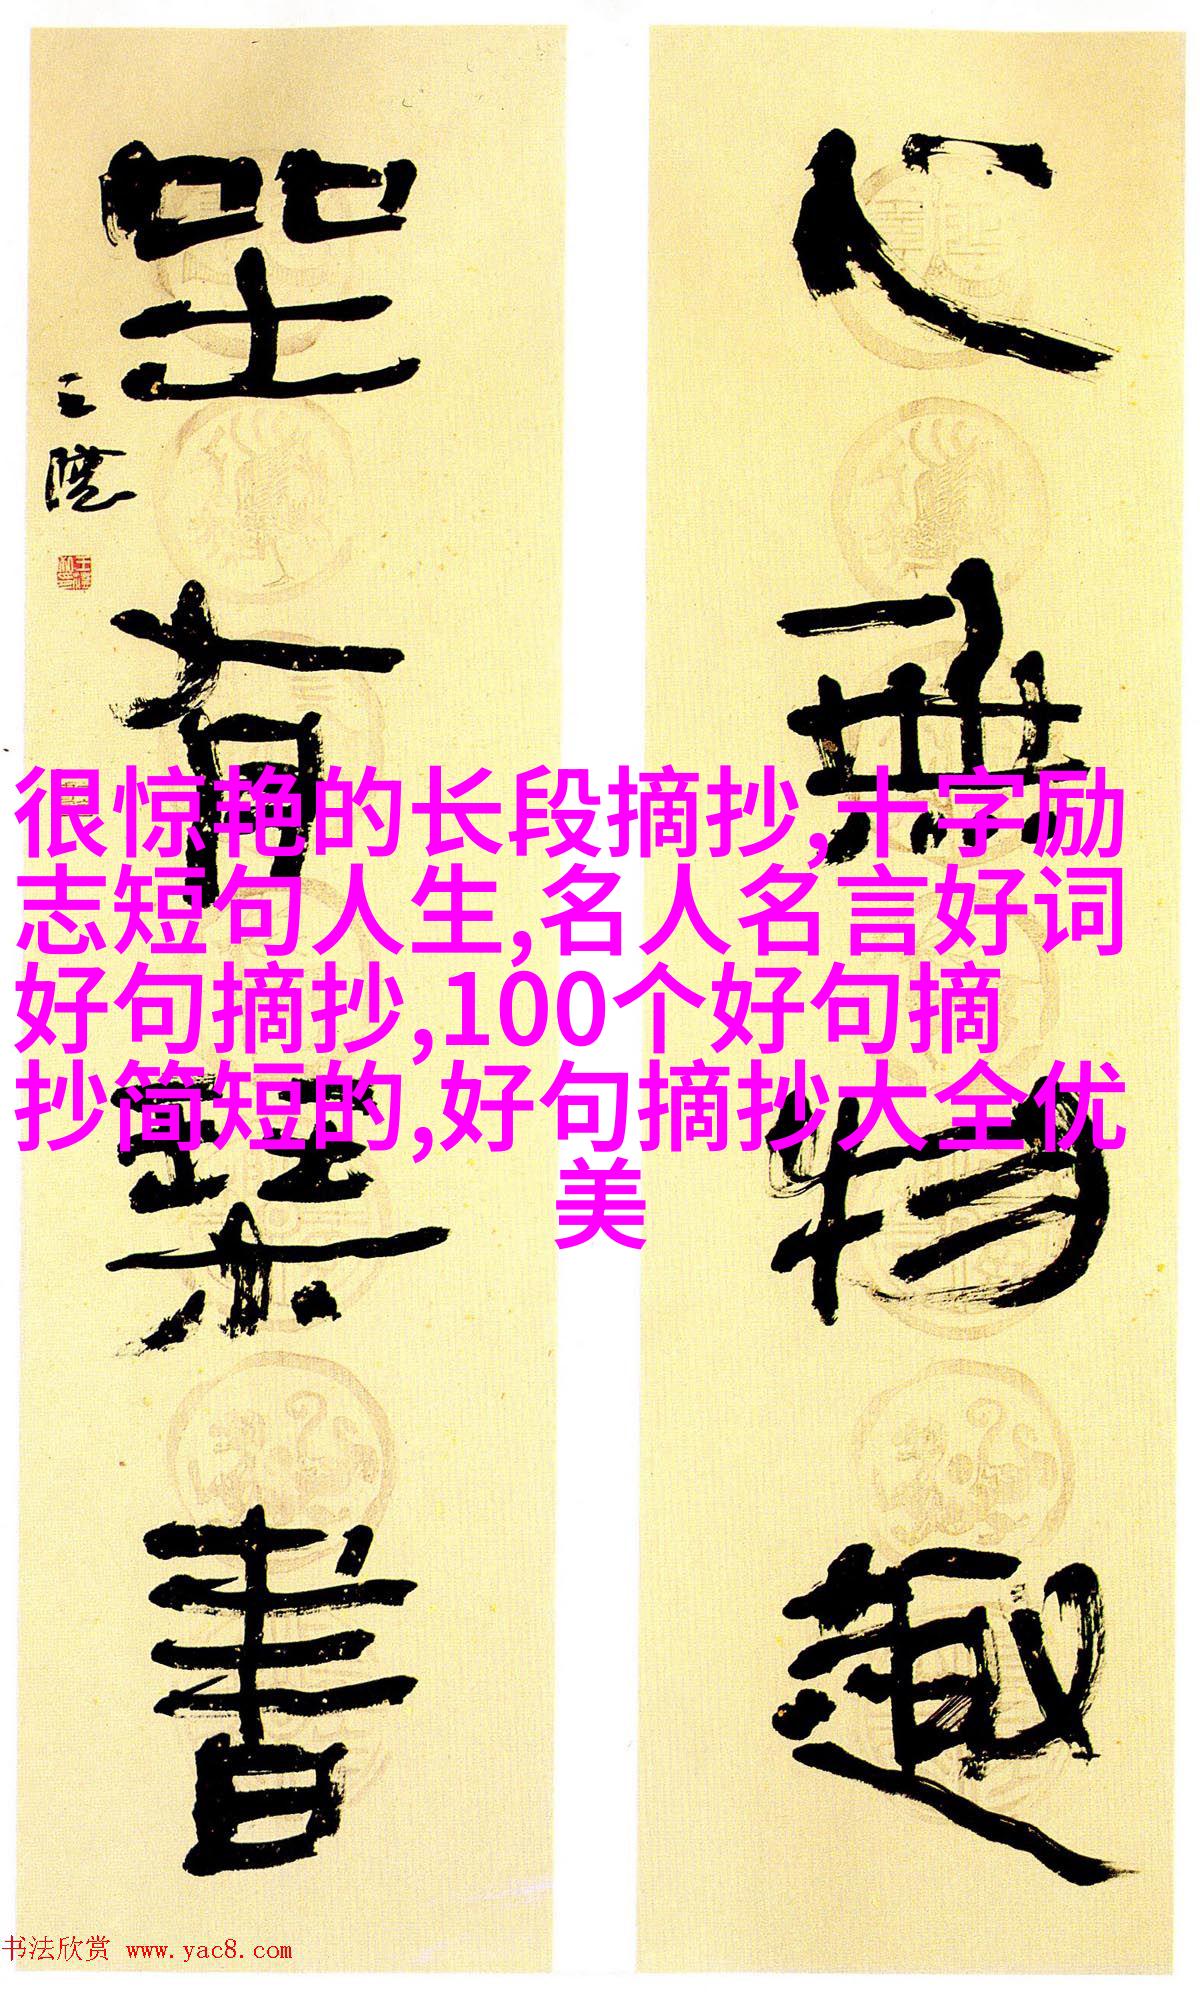 心無物趣
坐有琴書
很惊艳的长段摘抄,十字励
志短句人生,名人名言好词
好句摘抄,100个好句摘
抄简短的,好句摘抄大全优
美
书法欣赏 www.yac8.com